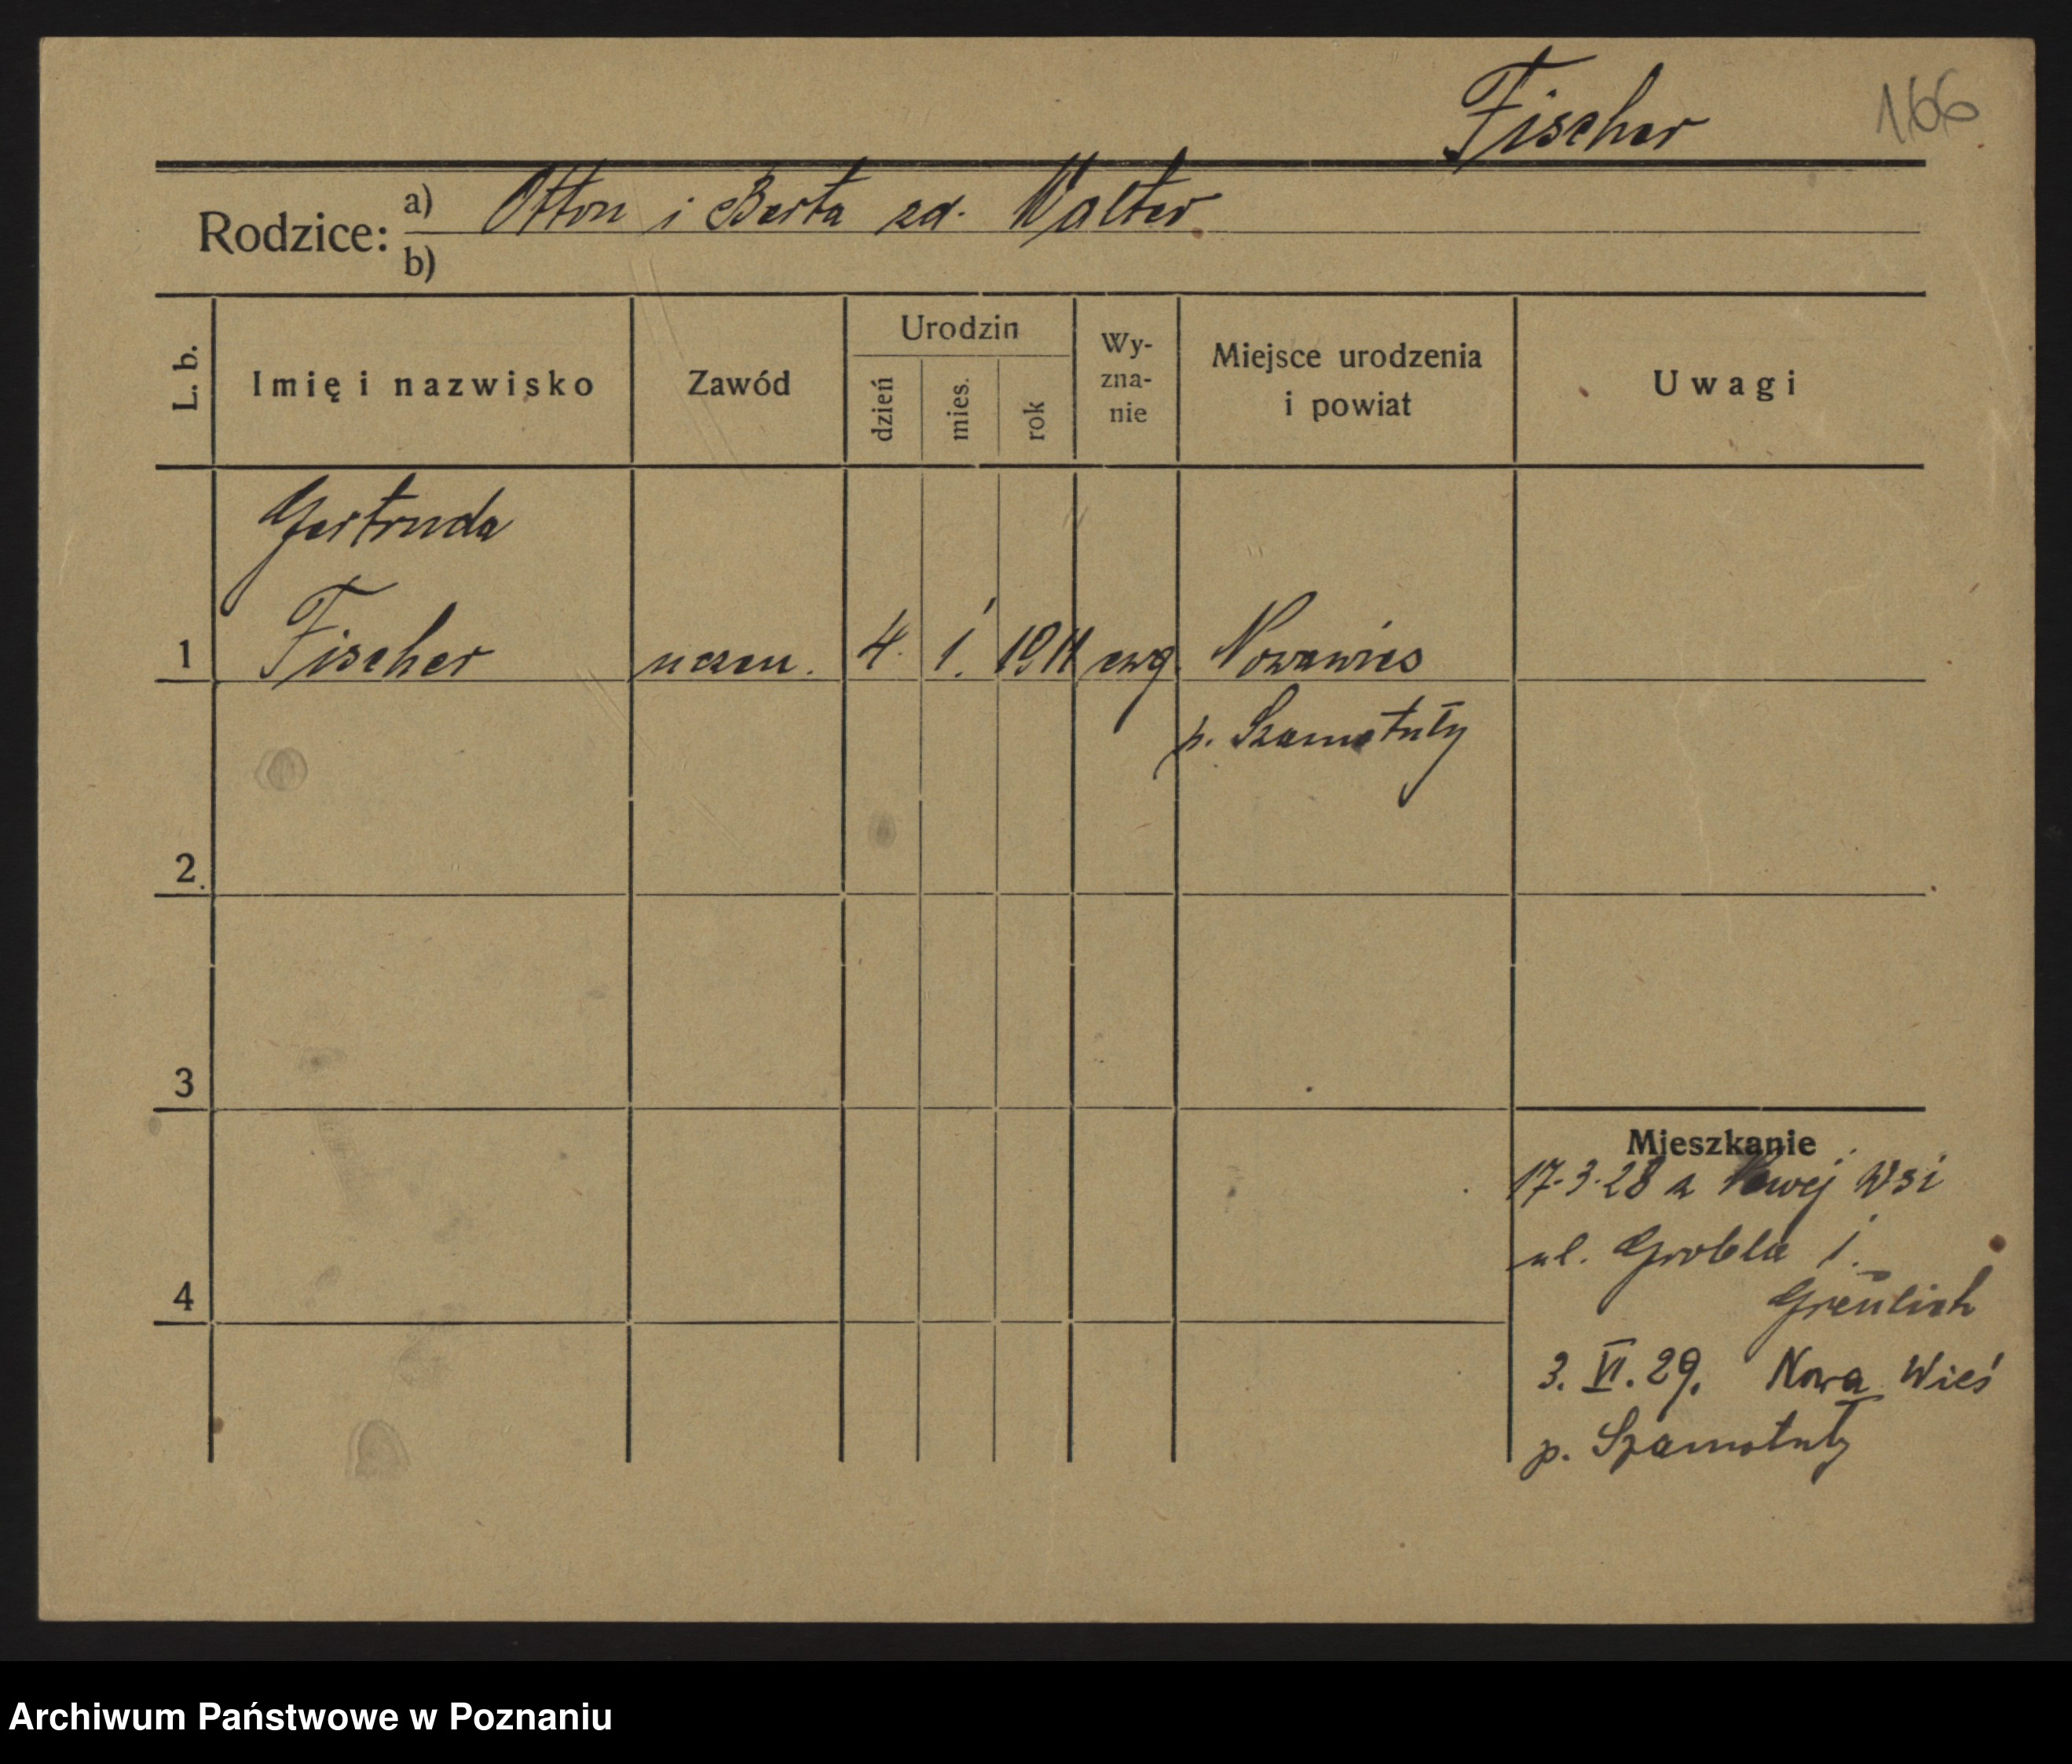 Fischer
166
Rodzice: a) Otton i Berta zd. Walter
b)
L. b.
Imię i nazwisko
Zawód
Urodzin
dzień
mies.
rok
Wy-
zna-
nie
Miejsce urodzenia
i powiat
Uwagi
Gertruda
1 Fischer uczen. 4. 1. 1911 ewg. Nowawies
p. Szamotuły
2.
3
4
Mieszkanie
17.3.28 z Nowej Wsi
ul. Grobla 1.
Greulich
3. VI. 29. Nowa Wieś
p. Szamotuły
Archiwum Państwowe w Poznaniu